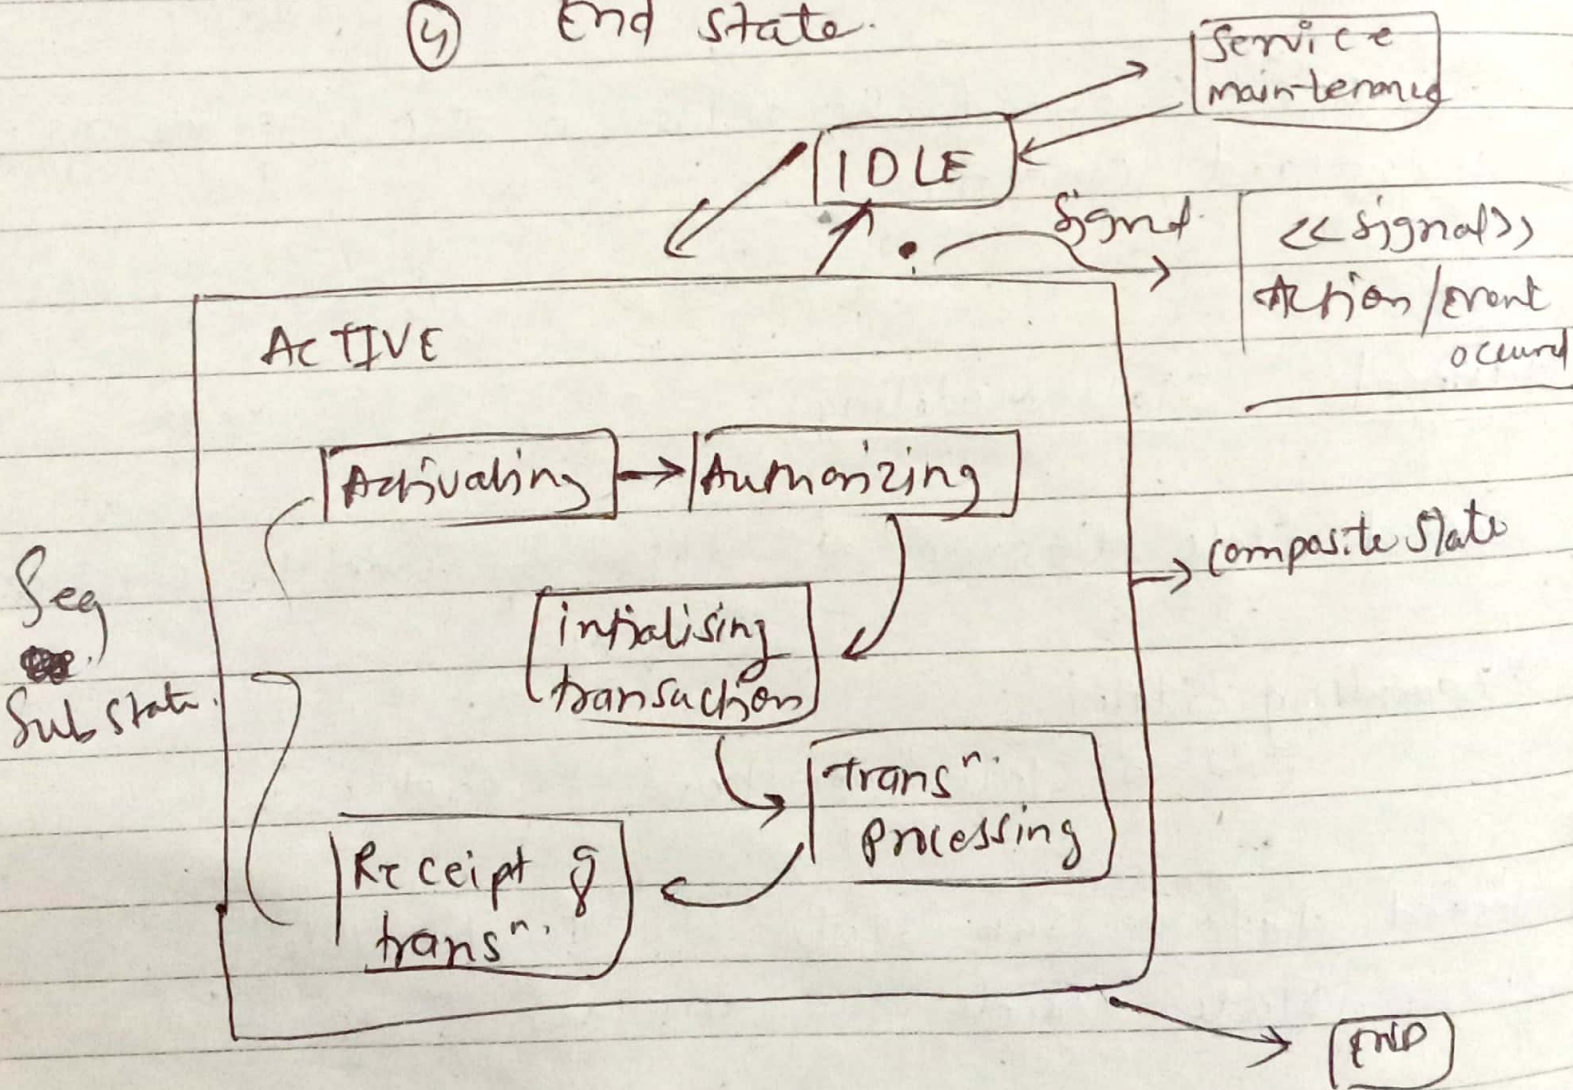 ④ End state.
Service
maintenance
IDLE
Signal
<<signal>>
Action/event
occurred
ACTIVE
Activating
Authorizing
composite state
Seq
Sub state.
intialising
transaction
transⁿ.
processing
Receipt of
transⁿ.
END